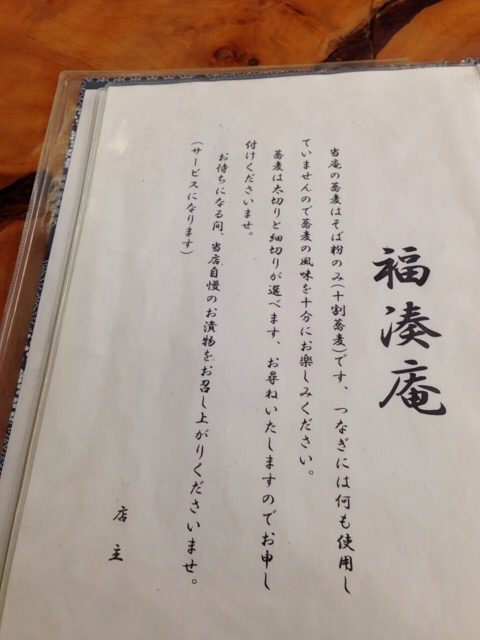 福湊庵
当庵の蕎麦はそば粉のみ(十割蕎麦)です、つなぎには何も使用し
ていませんので蕎麦の風味を十分にお楽しみください。
蕎麦は太切りと細切りが選べます、お尋ねいたしますのでお申し
付けくださいませ。
お待ちになる間、当店自慢のお漬物をお召し上がりくださいませ。
(サービスになります)
店主